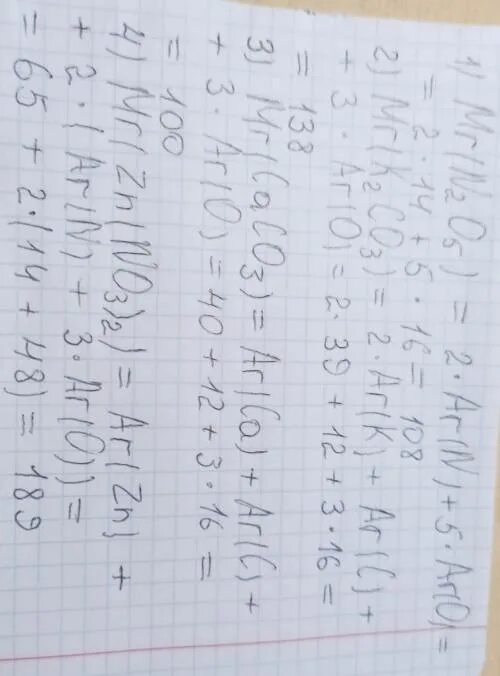 1) Mr(N₂O₅) = 2·Ar(N) + 5·Ar(O) =
= 2·14 + 5·16 = 108
2) Mr(K₂CO₃) = 2·Ar(K) + Ar(C) +
+ 3·Ar(O) = 2·39 + 12 + 3·16 =
= 138
3) Mr(CaCO₃) = Ar(Ca) + Ar(C) +
+ 3·Ar(O) = 40 + 12 + 3·16 =
= 100
4) Mr(Zn(NO₃)₂) = Ar(Zn) +
+ 2·(Ar(N) + 3·Ar(O)) =
= 65 + 2·(14 + 48) = 189